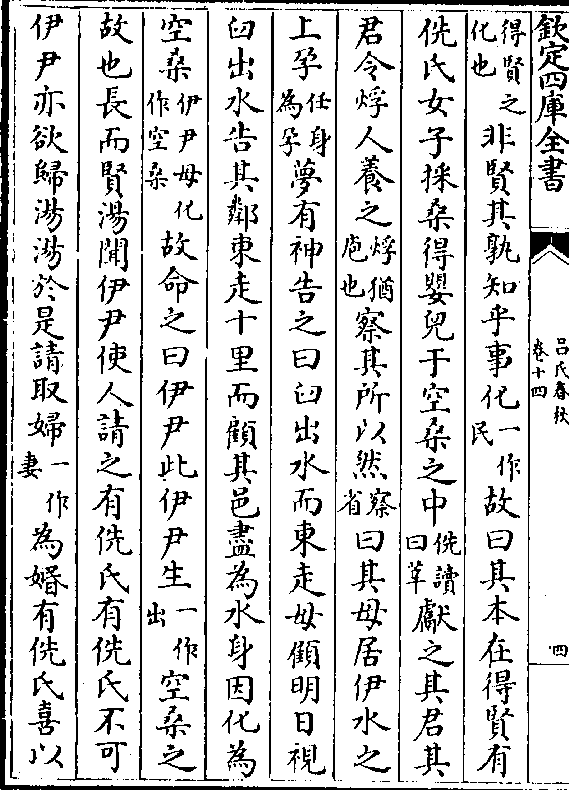 欽定四庫全書
呂氏春秋
卷十四
四
得賢之化也非賢其孰知乎事化一作民故曰其本在得賢有
侁氏女子採桑得嬰兒于空桑之中侁讀曰莘獻之其君其
君令烰人養之烰猶庖也察其所以然察省曰其母居伊水之
上孕任身為孕夢有神告之曰臼出水而東走母顧明日視
臼出水告其鄰東走十里而顧其邑盡為水身因化為
空桑伊尹母化作空桑故命之曰伊尹此伊尹生一作出空桑之
故也長而賢湯聞伊尹使人請之有侁氏有侁氏不可
伊尹亦欲歸湯湯於是請取婦一作妻為婚有侁氏喜以